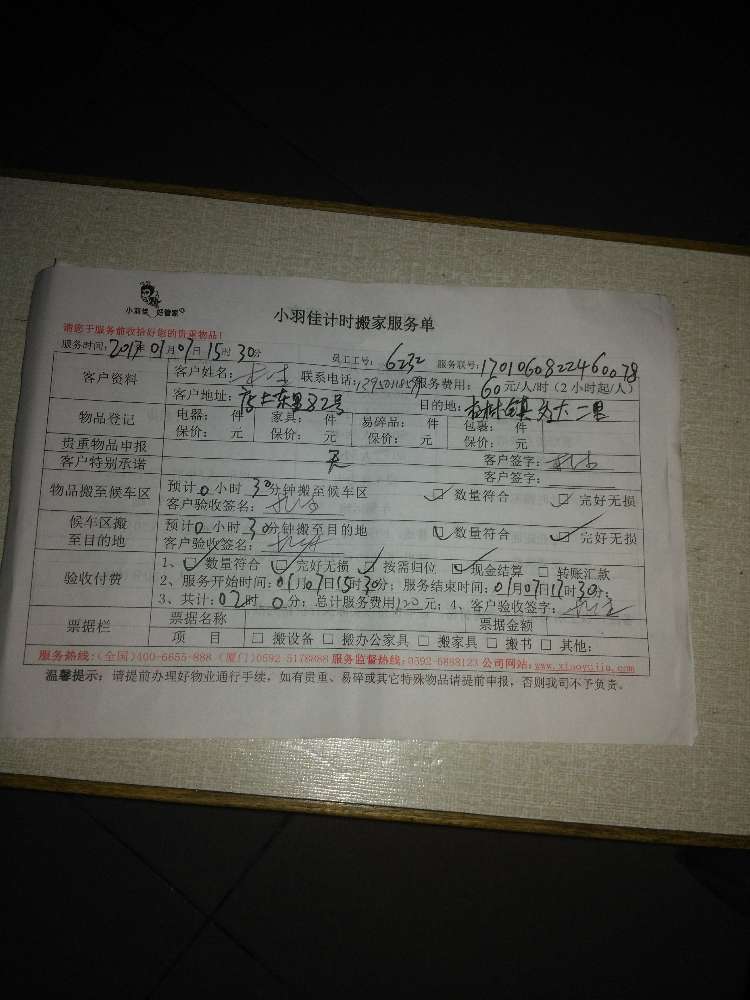 小羽佳 好管家
小羽佳计时搬家服务单
请您于服务前收拾好您的贵重物品!
服务时间:2017年01月07日15时30分 员工工号:6232 服务联号:1701060822460078
客户资料 客户姓名: 联系电话: 服务费用:60元/人/时(2小时起/人)
客户地址: 目的地:
物品登记 电器: 件 家具: 件 易碎品: 件 包裹: 件
保价: 元 保价: 元 保价: 元 保价: 元
贵重物品申报 无 客户签字:
客户特别承诺 客户签字:
物品搬至候车区 预计0小时30分钟搬至候车区 数量符合 完好无损
客户验收签名:
候车区搬至目的地 预计0小时30分钟搬至目的地 数量符合 完好无损
客户验收签名:
验收付费 1、数量符合 完好无损 按需归位 现金结算 □ 转账汇款
2、服务开始时间:01月07日15时30分;服务结束时间:01月07日17时30分;
3、共计:02时0分;总计服务费用120元;4、客户验收签字:
票据栏 票据名称 票据金额
项 目 □ 搬设备 □ 搬办公家具 □ 搬家具 □ 搬书 □ 其他:
服务热线:(全国)400-6655-888 (厦门)0592-5178988 服务监督热线:0592-5898123 公司网站:www.xiaoyujia.com
温馨提示:请提前办理好物业通行手续,如有贵重、易碎或其它特殊物品请提前申报,否则我司不予负责。